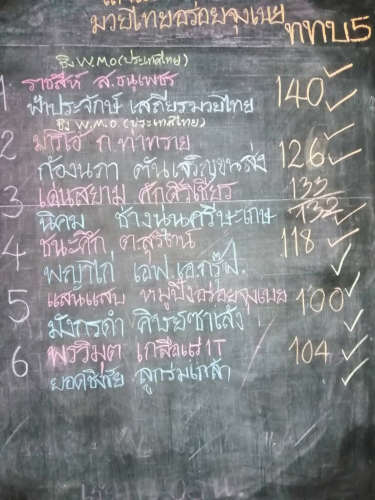 มวยไทยอร่อยจุงเบย ททบ5
ชิง W.M.O (ประเทศไทย)
1 ราชสีห์ ส.ธนูเพชร 140
ฟ้าประจักษ์ เสถียรมวยไทย
ชิง W.M.O. (ประเทศไทย)
2 มาริโอ้ ก.ท่าทราย 126
ก้องนภา ตันเจริญขนส่ง
3 เด่นสยาม ศักดิ์วิเชียร 133
นิคม ช้างนูนศรีษะเกษ 132
4 ชนะศึก ต.สุรัตน์ 118
พญาไก่ เอฟ.เอ.กรุ๊ป.
5 แสนแสบ หมูปิ้งอร่อยจุงเบย 100
มังกรดำ ศิษย์ซาเล้ง
6 พรวิมุต เกลือแร่IT 104
ยอดชิงชัย ลูกร่มเกล้า